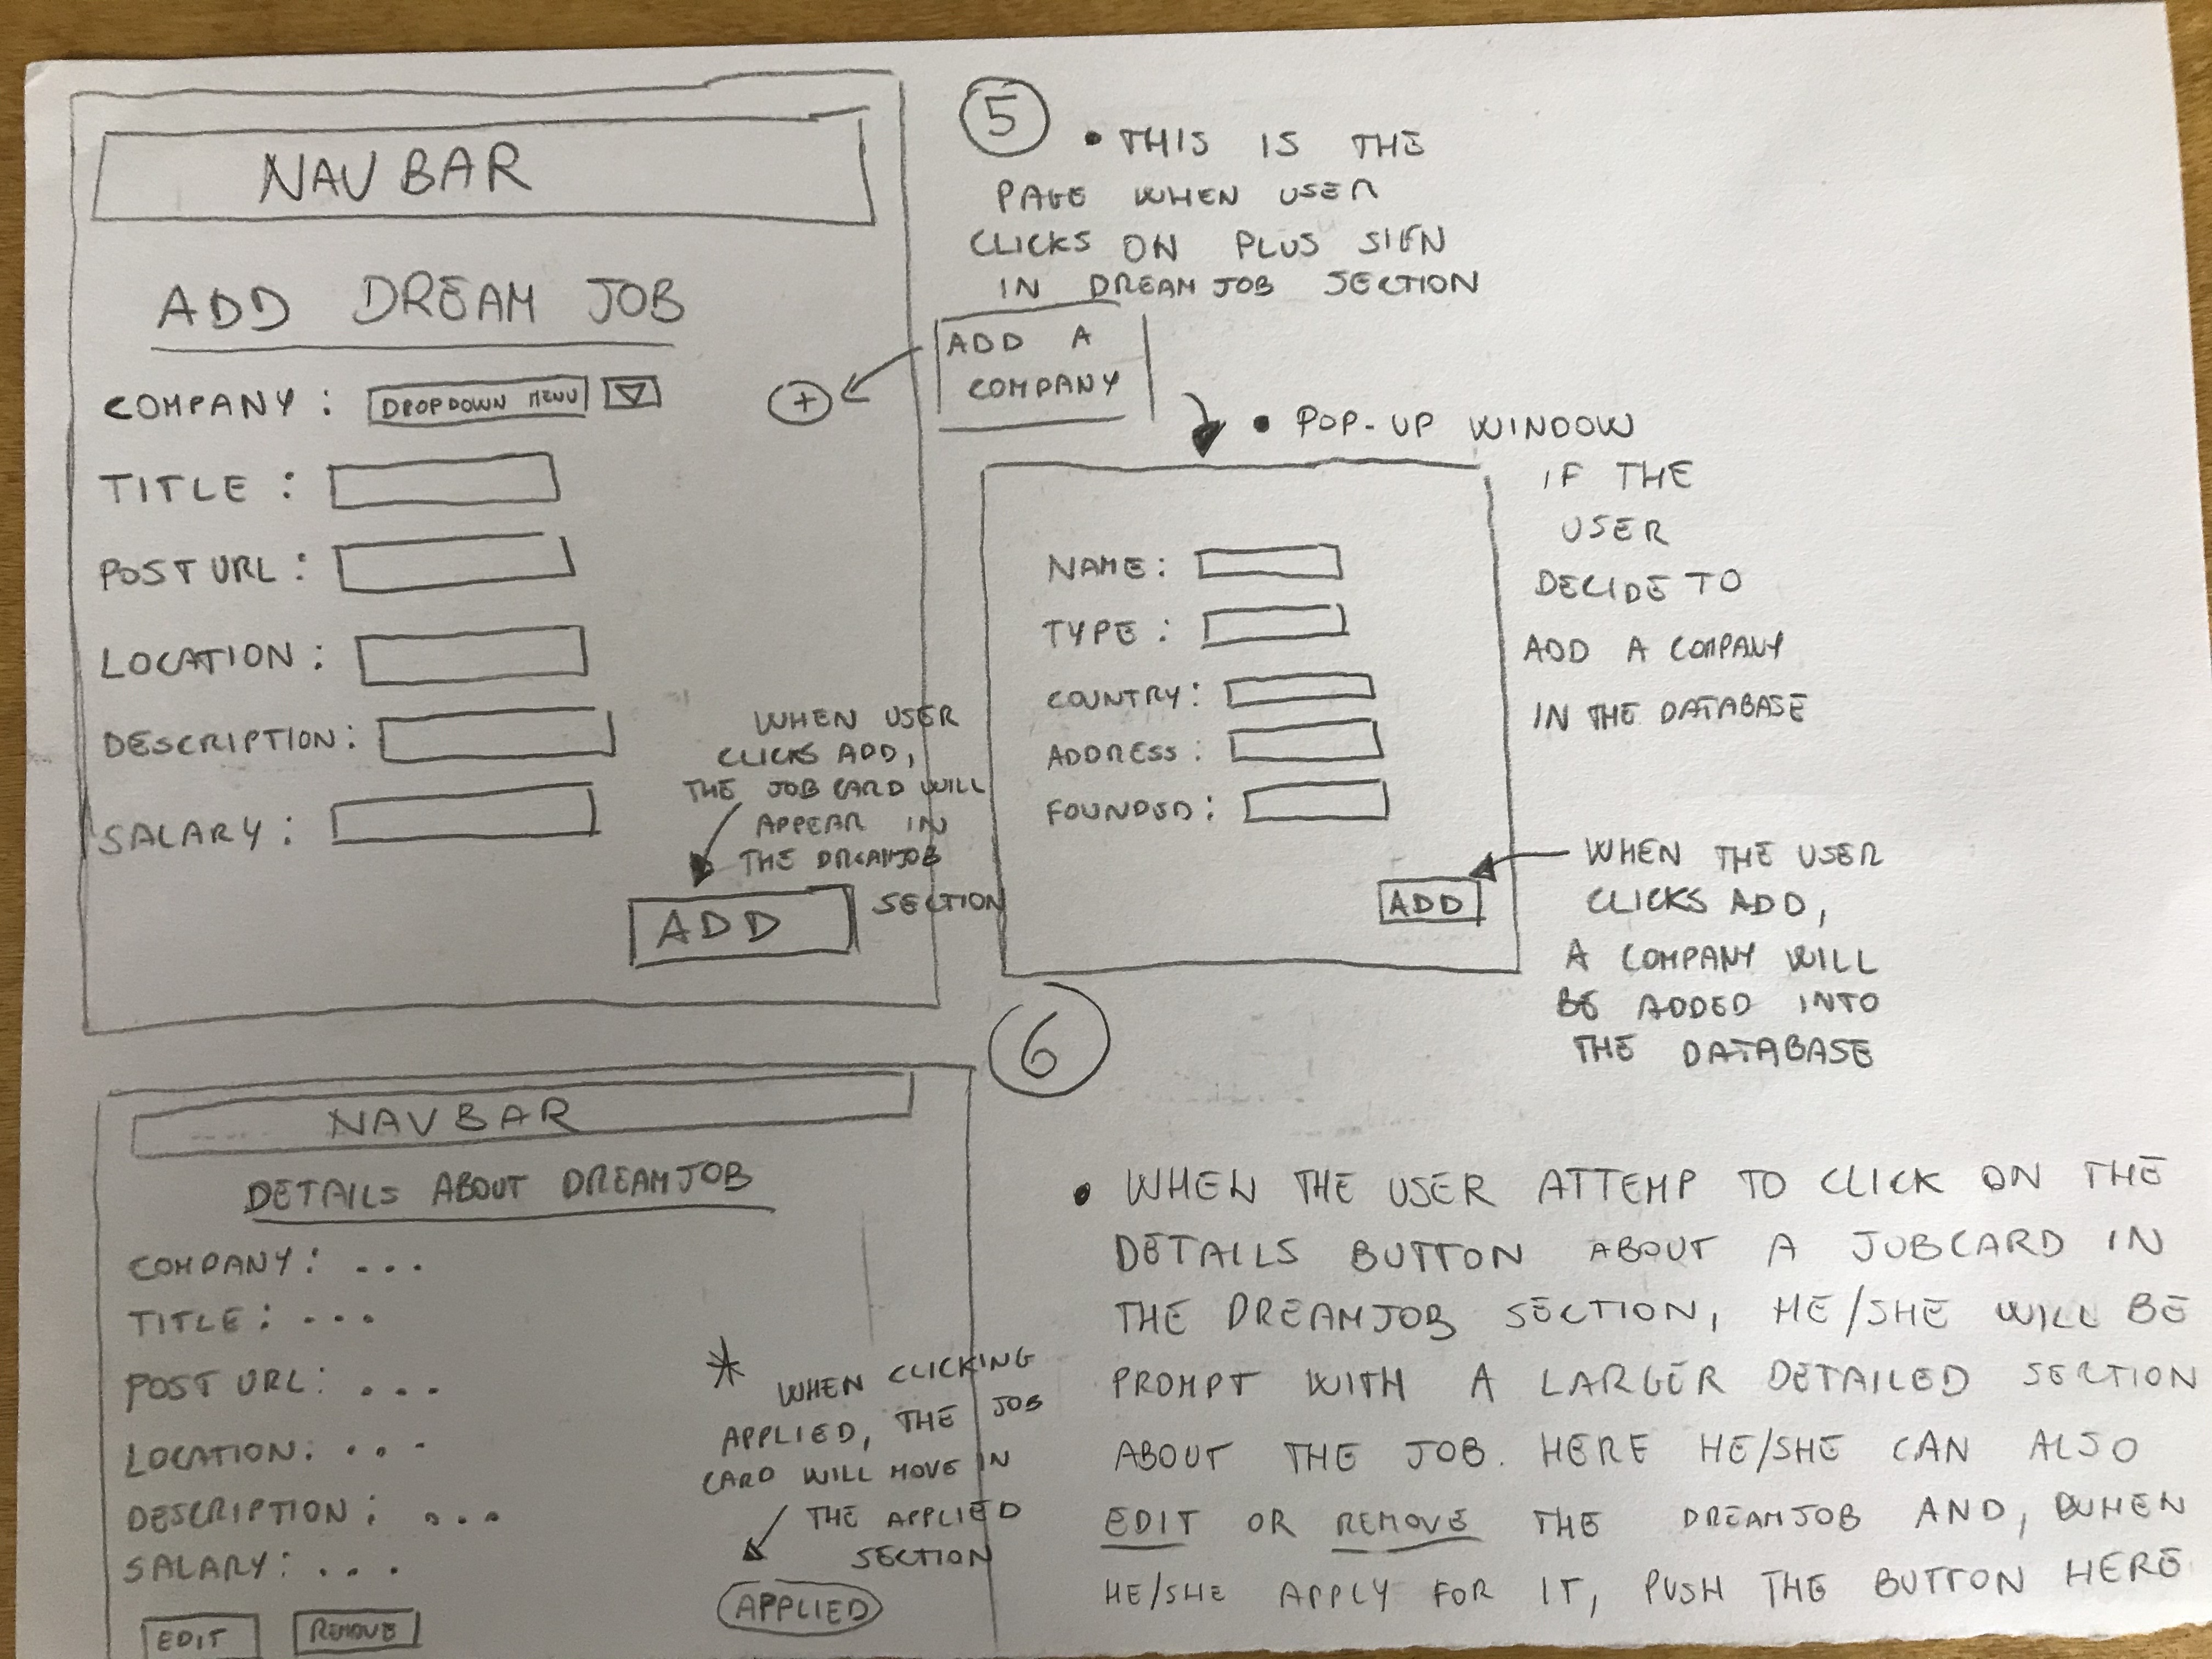 NAVBAR
ADD DREAM JOB
COMPANY: DROPDOWN MENU
+
TITLE:
POST URL:
LOCATION:
DESCRIPTION:
SALARY:
WHEN USER
CLICKS ADD,
THE JOB CARD WILL
APPEAR IN
THE DREAMJOB
SECTION
ADD
5
• THIS IS THE
PAGE WHEN USER
CLICKS ON PLUS SIGN
IN DREAMJOB SECTION
ADD A
COMPANY
• POP-UP WINDOW
IF THE
USER
DECIDE TO
ADD A COMPANY
IN THE DATABASE
NAME:
TYPE:
COUNTRY:
ADDRESS:
FOUNDED:
ADD
WHEN THE USER
CLICKS ADD,
A COMPANY WILL
BE ADDED INTO
THE DATABASE
6
NAVBAR
DETAILS ABOUT DREAMJOB
COMPANY: ...
TITLE: ...
POST URL: ...
LOCATION: ...
DESCRIPTION: ...
SALARY: ...
EDIT REMOVE
* WHEN CLICKING
APPLIED, THE JOB
CARD WILL MOVE IN
THE APPLIED
SECTION
APPLIED
• WHEN THE USER ATTEMP TO CLICK ON THE
DETAILS BUTTON ABOUT A JOBCARD IN
THE DREAMJOB SECTION, HE/SHE WILL BE
PROMPT WITH A LARGER DETAILED SECTION
ABOUT THE JOB. HERE HE/SHE CAN ALSO
EDIT OR REMOVE THE DREAMJOB AND, WHEN
HE/SHE APPLY FOR IT, PUSH THE BUTTON HERE